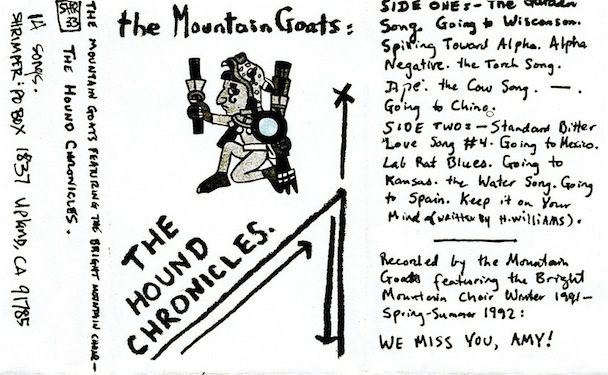 14 SONGS.
SHRIMPER: PO BOX 1837 UPLAND, CA 91785
SHR
33
THE MOUNTAIN GOATS FEATURING THE BRIGHT MOUNTAIN CHOIR—
THE HOUND CHRONICLES.
the Mountain Goats:
THE
HOUND
CHRONICLES.
SIDE ONE:- The Garden
Song. Going to Wisconsin.
Spilling Toward Alpha. Alpha
Negative. the Torch Song.
the Cow Song. —.
Going to Chino.
SIDE TWO:— Standard Bitter
Love Song #4. Going to Mexico.
Lab Rat Blues. Going to
Kansas. the Water Song. Going
to Spain. Keep it on Your
Mind (written by H. Williams).
Recorded by the Mountain
Goats featuring the Bright
Mountain Choir Winter 1991—
Spring-Summer 1992:
WE MISS YOU, AMY!